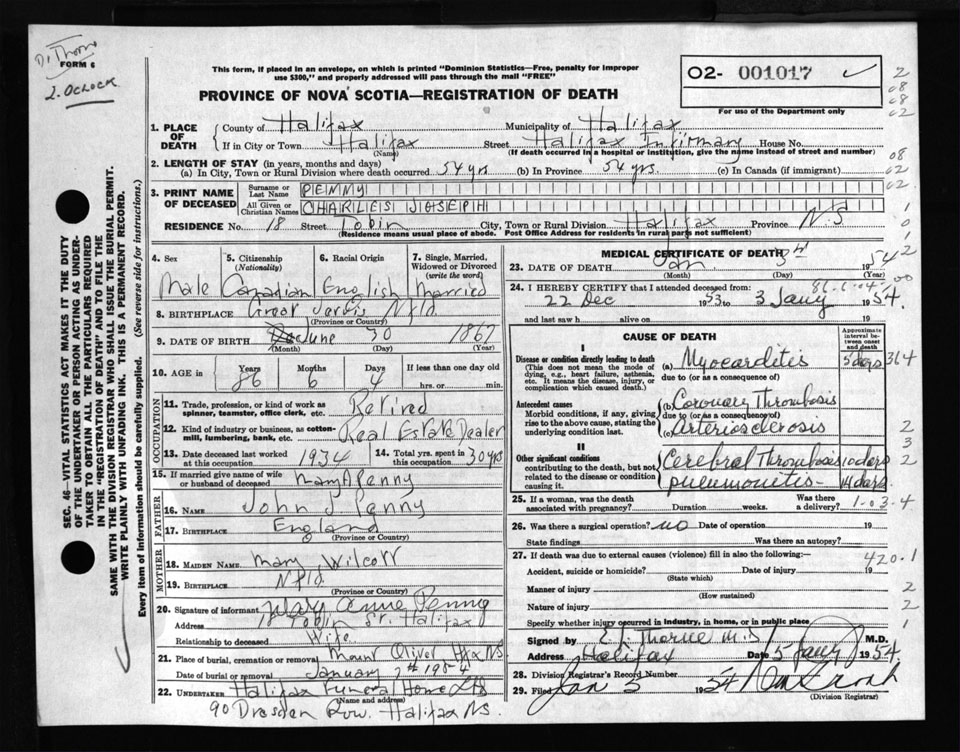 Dr Thorne
FORM 6
2. OCLOCK
This form, if placed in an envelope, on which is printed "Dominion Statistics—Free, penalty for improper
use $300," and properly addressed will pass through the mail "FREE"
PROVINCE OF NOVA SCOTIA—REGISTRATION OF DEATH
02- 001017
For use of the Department only
SEC. 46—VITAL STATISTICS ACT MAKES IT THE DUTY
OF THE UNDERTAKER OR PERSON ACTING AS UNDER-
TAKER TO OBTAIN ALL THE PARTICULARS REQUIRED
IN THE "REGISTRATION OF DEATH" AND TO FILE THE
SAME WITH THE DIVISION REGISTRAR WHO SHALL ISSUE THE BURIAL PERMIT.
WRITE PLAINLY WITH UNFADING INK. THIS IS A PERMANENT RECORD.
Every item of information should be carefully supplied. (See reverse side for instructions.)
1. PLACE OF DEATH County of Halifax Municipality of Halifax
If in City or Town Halifax Street Halifax Infirmary House No.
(Name) (If death occurred in a hospital or institution, give the name instead of street and number)
2. LENGTH OF STAY (in years, months and days)
(a) In City, Town or Rural Division where death occurred 54 yrs (b) In Province 54 yrs. (c) In Canada (if immigrant)
3. PRINT NAME OF DECEASED Surname or Last Name PENNY
All Given or Christian Names CHARLES JOSEPH
RESIDENCE No. 18 Street Tobin City, Town or Rural Division Halifax Province N.S
(Residence means usual place of abode. Post Office Address for residents in rural parts not sufficient)
4. Sex 5. Citizenship (Nationality) 6. Racial Origin 7. Single, Married, Widowed or Divorced (write the word)
Male Canadian English Married
8. BIRTHPLACE Great Jervis Nfld.
(Province or Country)
9. DATE OF BIRTH June 30 1867
(Month) (Day) (Year)
10. AGE in Years Months Days If less than one day old
86 6 4 hrs. or min.
OCCUPATION
11. Trade, profession, or kind of work as spinner, teamster, office clerk, etc. Retired
12. Kind of industry or business, as cotton-mill, lumbering, bank, etc. Real Estate Dealer
13. Date deceased last worked at this occupation 1934 14. Total yrs. spent in this occupation 30 yrs
15. If married give name of wife or husband of deceased Mary A Penny
FATHER
16. NAME John J Penny
17. BIRTHPLACE England
(Province or Country)
MOTHER
18. MAIDEN NAME Mary Wilcott
19. BIRTHPLACE Nfld.
(Province or Country)
20. Signature of informant Mary Anne Penny
Address 18 Tobin St. Halifax
Relationship to deceased Wife
21. Place of burial, cremation or removal Mount Olivet Hfx NS
Date of burial or removal January 7 1954
22. UNDERTAKER Halifax Funeral Home Ltd
(Name and address)
90 Dresden Row. Halifax NS.
MEDICAL CERTIFICATE OF DEATH
23. DATE OF DEATH Jan. 3rd 1954
(Month) (Day) (Year)
24. I HEREBY CERTIFY that I attended deceased from:
22 Dec 1953 to 3 Jany 1954.
and last saw h alive on 19
CAUSE OF DEATH
Approximate interval between onset and death
I
Disease or condition directly leading to death (a) Myocarditis 5 days 364
(This does not mean the mode of dying, e.g., heart failure, asthenia, etc. It means the disease, injury, or complication which caused death.)
due to (or as a consequence of)
Antecedent causes (b) Coronary Thrombosis
Morbid conditions, if any, giving rise to the above cause, stating the underlying condition last.
due to (or as a consequence of)
(c) Arteriosclerosis
II
Other significant conditions contributing to the death, but not related to the disease or condition causing it.
Cerebral Thrombosis 10 days
pneumonitis— 14 days
25. If a woman, was the death associated with pregnancy? Duration weeks. Was there a delivery? 1-03-4
26. Was there a surgical operation? no Date of operation 19
State findings Was there an autopsy?
27. If death was due to external causes (violence) fill in also the following:—
420.1
Accident, suicide or homicide? Date of injury 19
(State which)
Manner of injury
(How sustained)
Nature of injury
Specify whether injury occurred in industry, in home, or in public place
Signed by E. J. Thorne M.D. M.D.
Address Halifax Date 5 Jany 1954.
28. Division Registrar's Record Number
29. Filed Jan 5 1954
(Division Registrar)